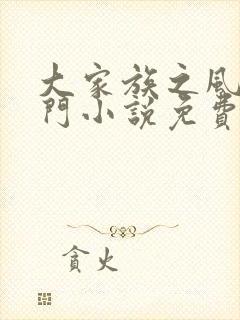 大家族之風
門小說免費
貪火